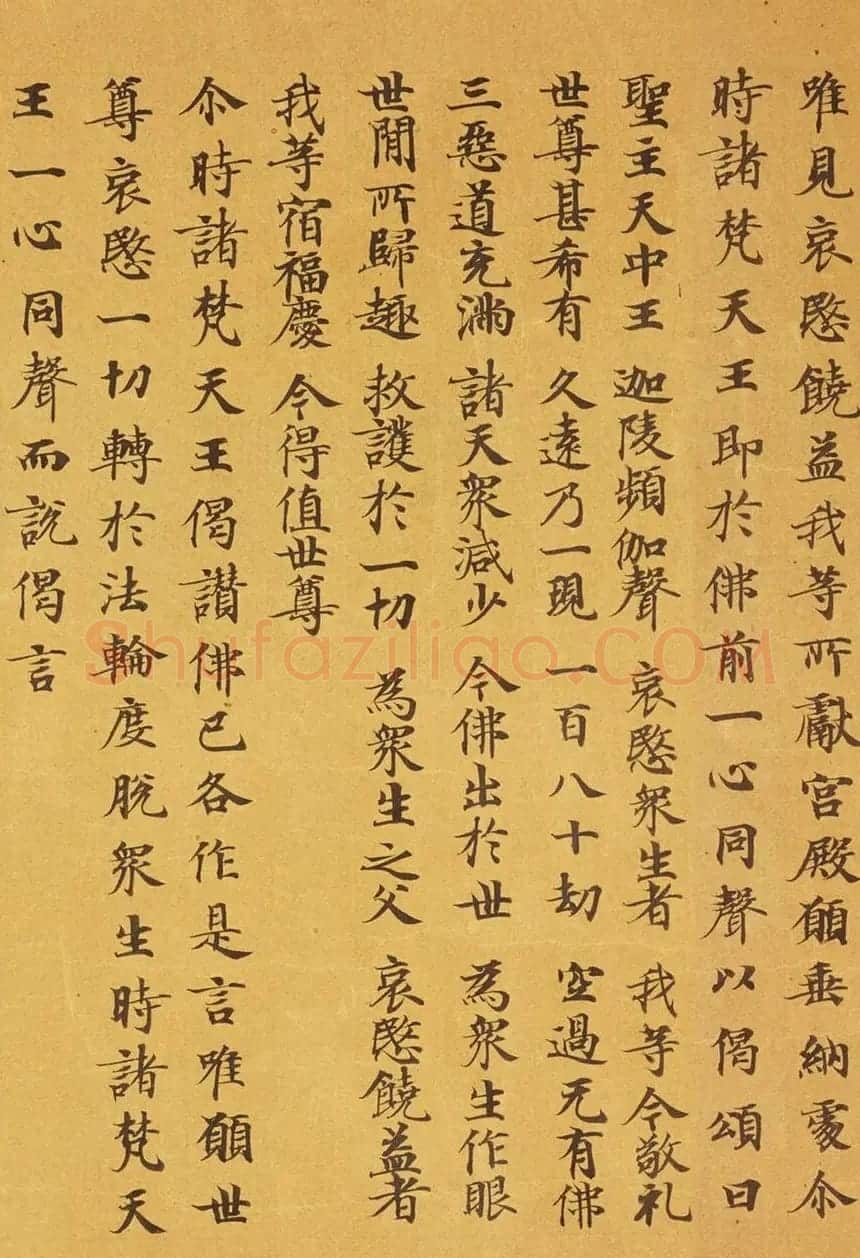 唯見哀愍饒益我等所獻宮殿願垂納處尒
時諸梵天王即於佛前一心同聲以偈頌曰
聖主天中王 迦陵頻伽聲 哀愍衆生者 我等今敬礼
世尊甚希有 久遠乃一現 一百八十劫 空過无有佛
三惡道充滿 諸天衆減少 今佛出於世 為衆生作眼
世間所歸趣 救護於一切 為衆生之父 哀愍饒益者
我等宿福慶 今得值世尊
尒時諸梵天王偈讃佛已各作是言唯願世
尊哀愍一切轉於法輪度脫衆生時諸梵天
王一心同聲而說偈言
Shufaziliao.COM